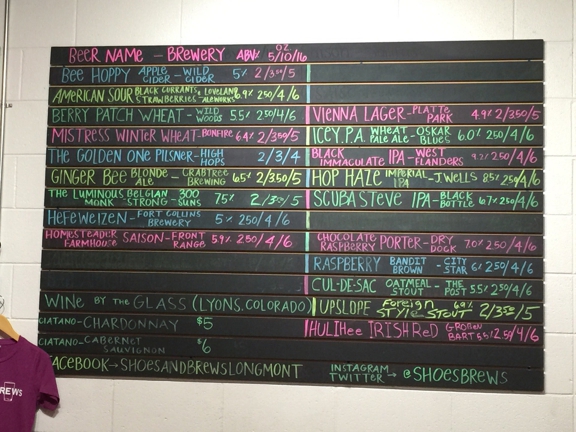 BEER NAME - BREWERY ABV% OZ. 5/10/16
BEE HOPPY APPLE CIDER - WILD CIDER 5% 2/3.50/5
AMERICAN SOUR BLACK CURRANTS & STRAWBERRIES LOVELAND ALEWORKS 6.9% 2.50/4/6
BERRY PATCH WHEAT - WILD WOODS 5.5% 2.50/4/6
MISTRESS WINTER WHEAT - BONFIRE 6.4% 2/3.50/5
THE GOLDEN ONE PILSNER - HIGH HOPS 2/3/4
GINGER BEE BLONDE ALE - CRABTREE BREWING 6.5% 2/3.50/5
THE LUMINOUS MONK BELGIAN STRONG - 300 SUNS 7.5% 2/3.50/5
HEFEWEIZEN - FORT COLLINS BREWERY 5% 2.50/4/6
HOMESTEADER FARMHOUSE SAISON - FRONT RANGE 5.9% 2.50/4/6
WINE BY THE GLASS (LYONS, COLORADO)
CIATANO - CHARDONNAY $5
CIATANO - CABERNET SAUVIGNON $6
VIENNA LAGER - PLATTE PARK 4.9% 2/3.50/5
ICEY.P.A. WHEAT PALE ALE - OSKAR BLUES 6.0% 2.50/4/6
BLACK IMMACULATE IPA - WEST FLANDERS 9.2% 2.50/4/6
HOP HAZE IMPERIAL IPA - J WELLS 8.5% 2.50/4/6
SCUBA STEVE IPA - BLACK BOTTLE 6.7% 2.50/4/6
CHOCOLATE RASPBERRY PORTER - DRY DOCK 7.0% 2.50/4/6
RASPBERRY BANDIT BROWN - CITY STAR 6% 2.50/4/6
CUL-DE-SAC OATMEAL STOUT - THE POST 5.5% 2.50/4/6
UPSLOPE Foreign STYLE STOUT 6.9% 2/3.50/5
HULIHee IRISH ReD 5.5% 2.50/4/6
FACEBOOK → SHOESANDBREWSLONGMONT
INSTAGRAM TWITTER → @SHOESBREWS
REWS